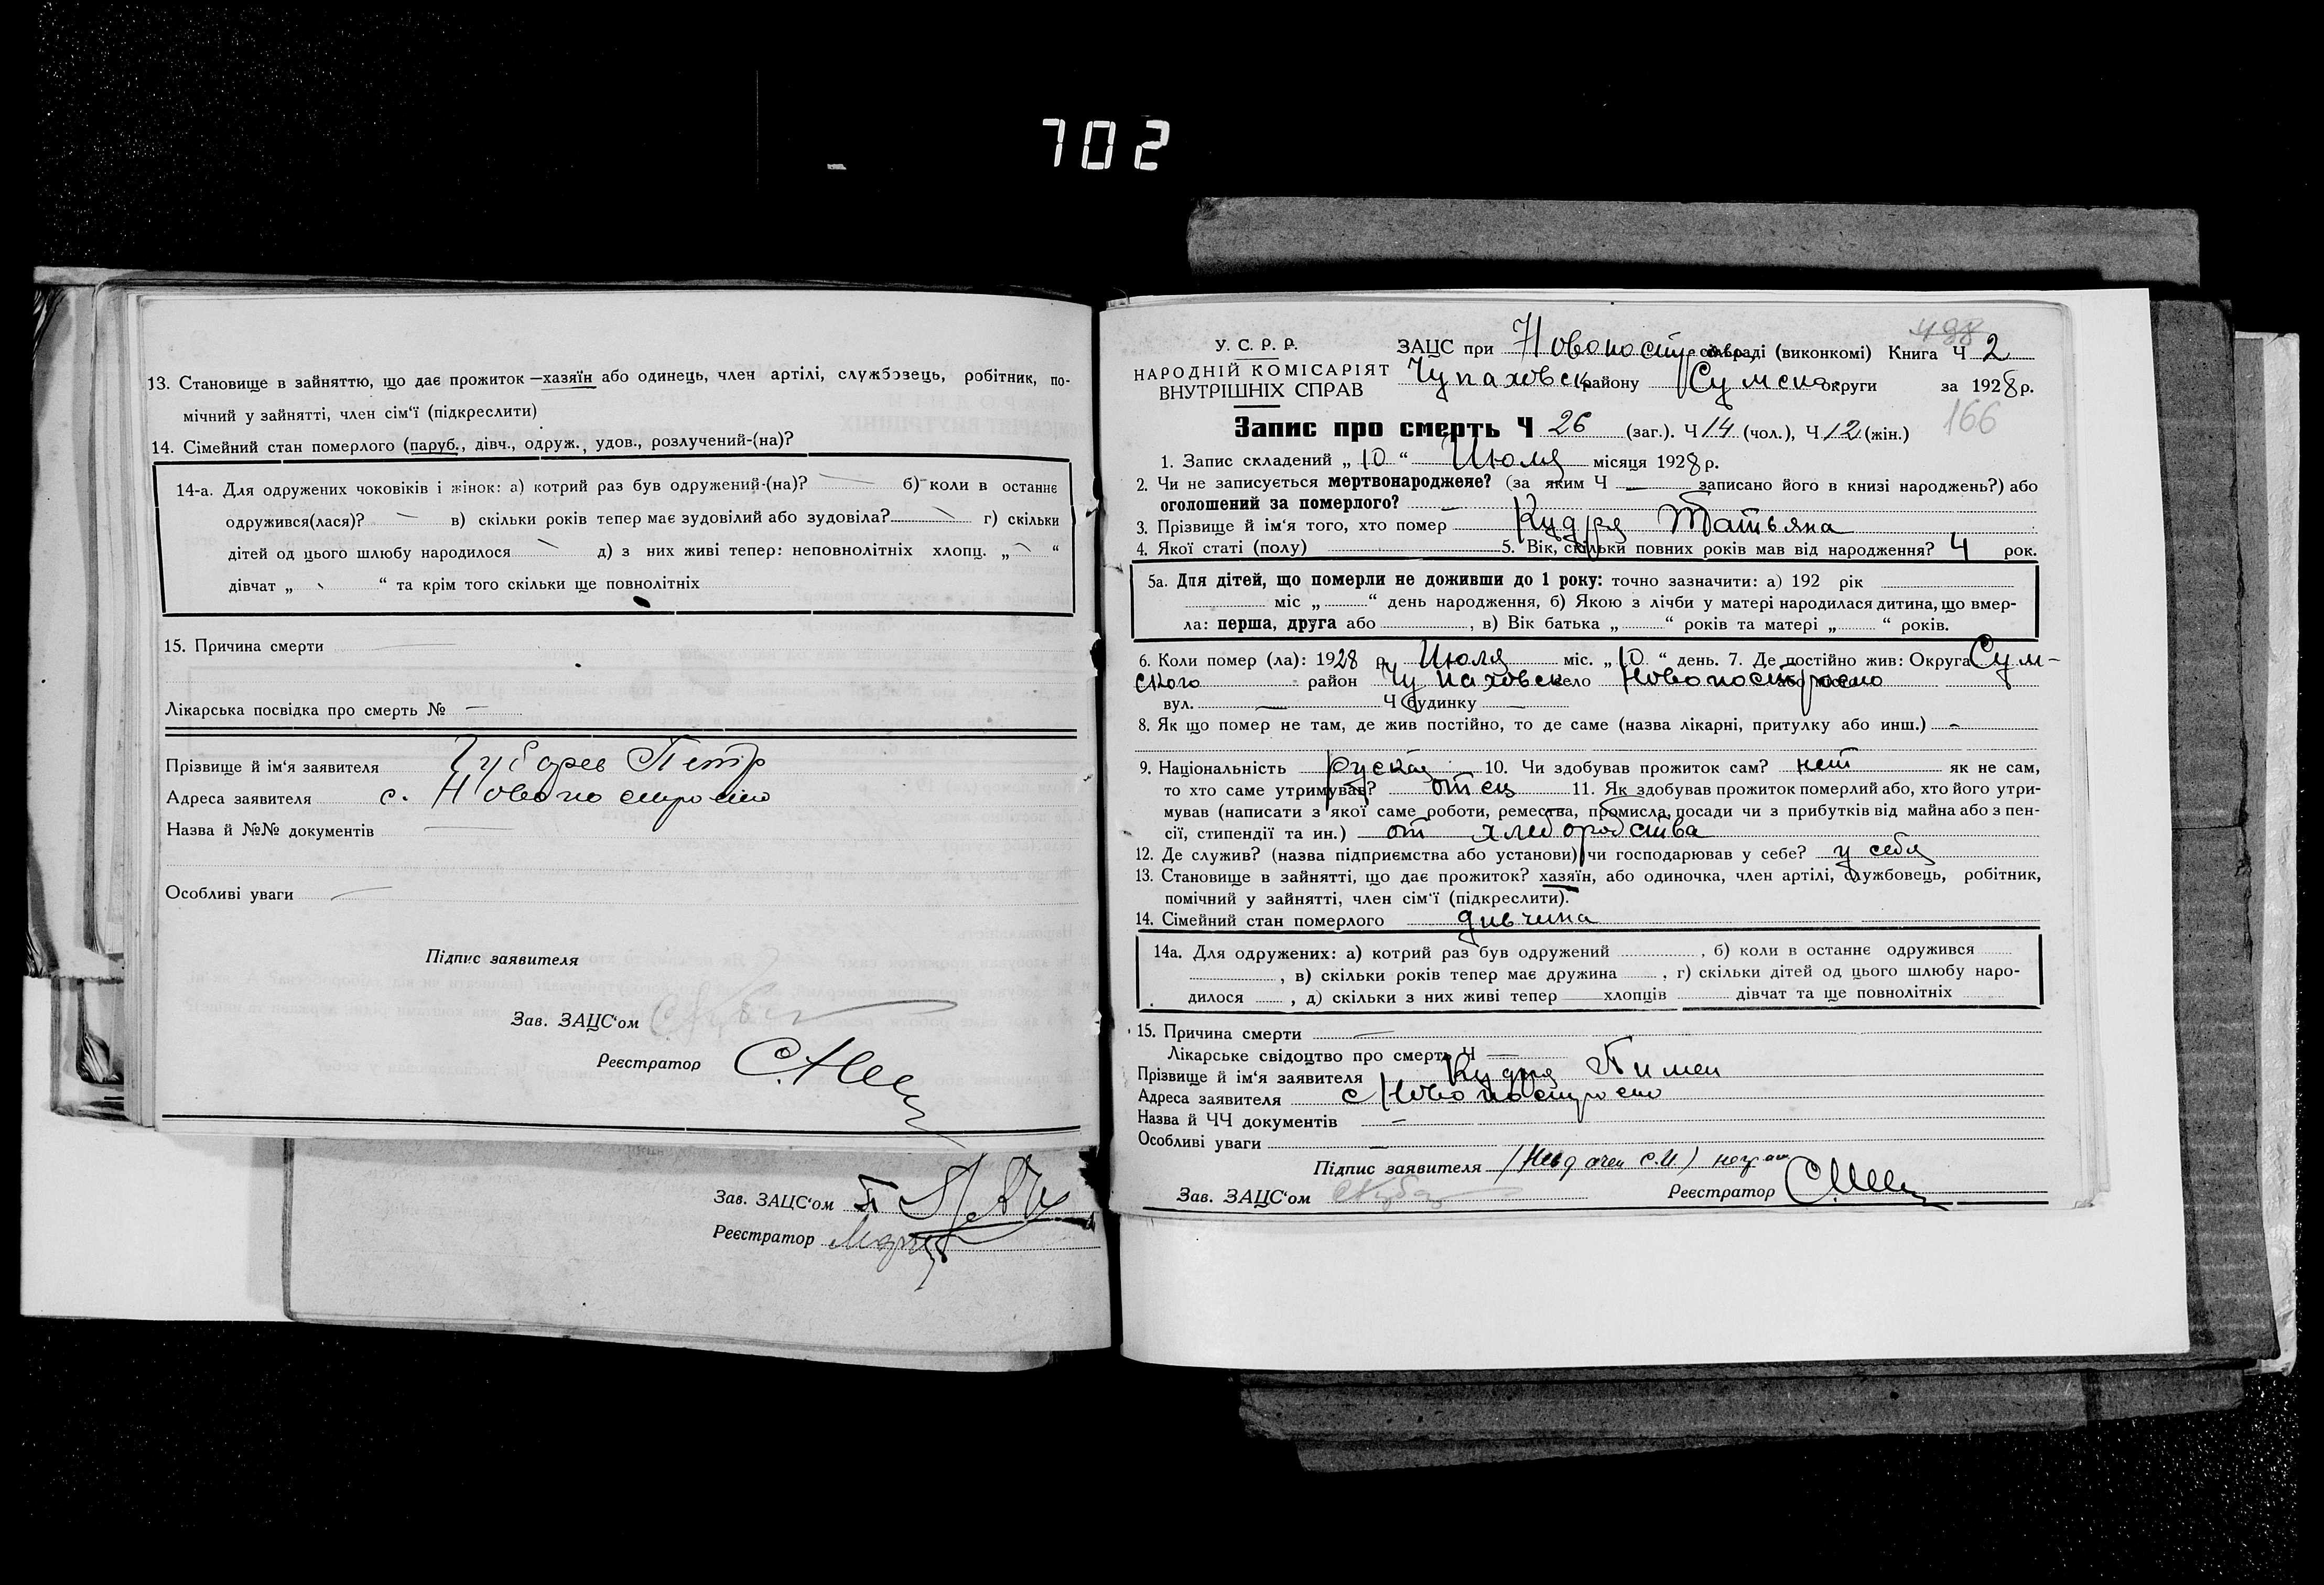 702
13. Становище в зайняттю, що дає прожиток —хазяїн або одинець, член артілі, службовець, робітник, по-
мічний у зайнятті, член сім'ї (підкреслити)
14. Сімейний стан померлого (паруб., дівч., одруж., удов., розлучений-(на)?
14-а. Для одружених чоковіків і жінок: а) котрий раз був одружений-(на)? б) коли в останнє
одружився(лася)? в) скільки років тепер має зудовілий або зудовіла? г) скільки
дітей од цього шлюбу народилося д) з них живі тепер: неповнолітніх хлопц. „ “
дівчат „ “ та крім того скільки ще повнолітніх
15. Причина смерти
Лікарська посвідка про смерть № —
Прізвище й ім'я заявителя Губарев Петр
Адреса заявителя с. Новопостроено
Назва й №№ документів —
Особливі уваги —
Підпис заявителя
Зав. ЗАЦС'ом
Реєстратор
Зав. ЗАЦС'ом
Реєстратор
498
У. С. Р. Р.
НАРОДНІЙ КОМІСАРІЯТ
ВНУТРІШНІХ СПРАВ
ЗАЦС при сільраді (виконкомі) Книга Ч 2
Чупаховск району Сумско округи за 1928 р.
166
Запис про смерть Ч 26 (заг.). Ч 14 (чол.), Ч 12 (жін.)
1. Запис складений „ 10 “ Июля місяця 1928 р.
2. Чи не записується мертвонароджене? (за яким Ч — записано його в книзі народжень?) або
оголошений за померлого? —
3. Прізвище й ім'я того, хто помер Кудря Татьяна
4. Якої статі (полу) 5. Вік, скільки повних років мав від народження? 4 рок.
5а. Для дітей, що померли не доживши до 1 року: точно зазначити: а) 192 рік
міс „ “ день народження, б) Якою з лічби у матері народилася дитина, що вмер-
ла: перша, друга або , в) Вік батька „ “ років та матері „ “ років.
6. Коли помер (ла): 1928 р Июля міс. „ 10 “ день. 7. Де постійно жив: Округа Сум-
ского район Чупаховск село Новопостроено
вул. — Ч будинку —
8. Як що помер не там, де жив постійно, то де саме (назва лікарні, притулку або инш.) —
9. Національність руская 10. Чи здобував прожиток сам? нет як не сам,
то хто саме утримував? отец 11. Як здобував прожиток померлий або, хто його утри-
мував (написати з якої саме роботи, ремества, промисла, посади чи з прибутків від майна або з пен-
сії, стипендії та ин.) от хлебородства
12. Де служив? (назва підприємства або установи) чи господарював у себе? у себя
13. Становище в зайнятті, що дає прожиток? хазяїн, або одиночка, член артілі, службовець, робітник,
помічний у зайнятті, член сім'ї (підкреслити).
14. Сімейний стан померлого дивчина
14а. Для одружених: а) котрий раз був одружений , б) коли в останнє одружився
, в) скільки років тепер має дружина , г) скільки дітей од цього шлюбу наро-
дилося , д) скільки з них живі тепер хлопців дівчат та ще повнолітніх
15. Причина смерти —
Лікарське свідоцтво про смерть Ч —
Прізвище й ім'я заявителя Кудря Пимен
Адреса заявителя с Новопостроено
Назва й ЧЧ документів —
Особливі уваги —
Підпис заявителя
Зав. ЗАЦС'ом
Реєстратор